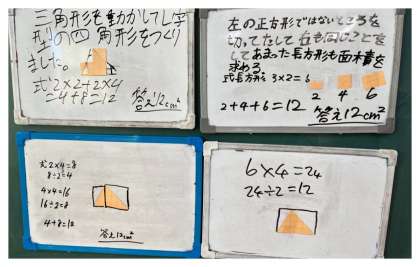 三角形を動かしてL字
型の四角形をつくり
ました。
式2×2+2×4
=4+8=12
答え12cm²
左の正方形ではないところを
切ってたして右も同じことを
してあまった長方形も面積を
求める
式長方形 3×2=6
2 4 6
2+4+6=12
答え12cm²
式2×4=8
8÷2=4
4×4=16
16÷2=8
4+8=12
答え12cm²
6×4=24
24÷2=12